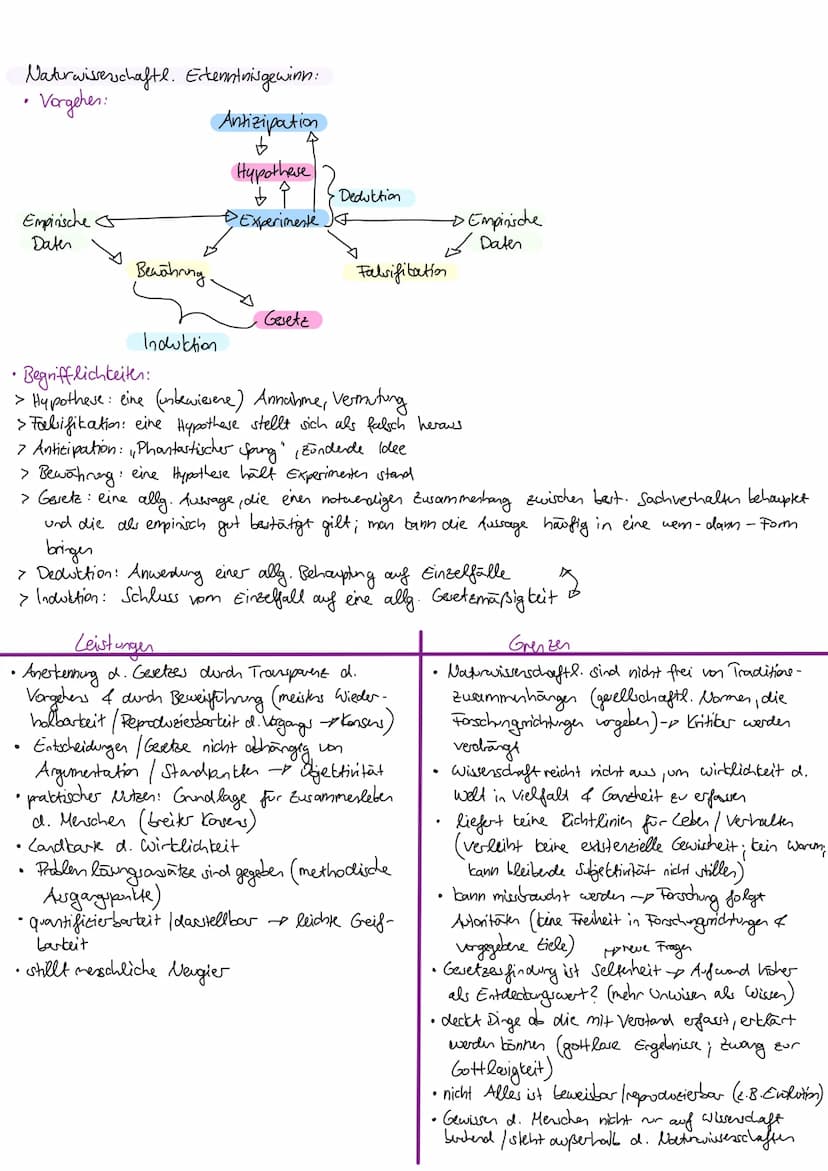 Naturwissenschaftl. Erkenntnisgewinn:
• Vorgehen:
Antizipation
Hypothese
Deduktion
Empirische
Daten
Experimente
Empirische
Daten
Bewährung
Falsifikation
Gesetz
Induktion
• Begrifflichkeiten:
> Hypothese: eine (unbewiesene) Annahme, Vermutung
> Falsifikation: eine Hypothese stellt sich als falsch heraus
> Antizipation: „Phantastischer Sprung", zündende Idee
> Bewährung: eine Hypothese hält Experimenten stand
> Gesetz: eine allg. Aussage, die einen notwendigen Zusammenhang zwischen best. Sachverhalten behauptet
und die als empirisch gut bestätigt gilt; man kann die Aussage häufig in eine wenn-dann-Form
bringen
> Deduktion: Anwendung einer allg. Behauptung auf Einzelfälle
> Induktion: Schluss vom Einzelfall auf eine allg. Gesetzmäßigkeit
Leistungen
• Anerkennung d. Gesetzes durch Transparenz d.
Vorgehens & durch Beweisführung (meistens Wieder-
holbarkeit / Reproduzierbarkeit d. Vorgangs → Konsens)
• Entscheidungen / Gesetze nicht abhängig von
Argumentation / Standpunkten → Objektivität
• praktischer Nutzen: Grundlage für Zusammenleben
d. Menschen (breiter Konsens)
• Landkarte d. Wirklichkeit
• Problemlösungsansätze sind gegeben (methodische
Ausgangspunkte)
• quantifizierbarkeit / darstellbar → leichte Greif-
barkeit
• stillt menschliche Neugier
Grenzen
• Naturwissenschaftl. sind nicht frei von Traditions-
zusammenhängen (gesellschaftl. Normen, die
Forschungsrichtungen vorgeben) → Kritiker werden
verdrängt
• Wissenschaft reicht nicht aus, um Wirklichkeit d.
Welt in Vielfalt & Ganzheit zu erfassen
• liefert keine Richtlinien für Leben / Verhalten
(verleiht keine existenzielle Gewissheit; kein Warum;
kann bleibende Subjektivität nicht stillen)
• kann missbraucht werden → Forschung folgt
Autoritäten (keine Freiheit in Forschungsrichtungen &
vorgegebene Ziele)
→ neue Fragen
• Gesetzesfindung ist Seltenheit → Aufwand höher
als Entdeckungswert? (mehr Unwissen als Wissen)
• deckt Dinge ab die mit Verstand erfasst, erklärt
werden können (gottlose Ergebnisse; Zwang zur
Gottlosigkeit)
• nicht Alles ist beweisbar / reproduzierbar (z.B. Evolution)
• Gewissen d. Menschen nicht nur auf Wissenschaft
/ steht außerhalb d. Naturwissenschaften